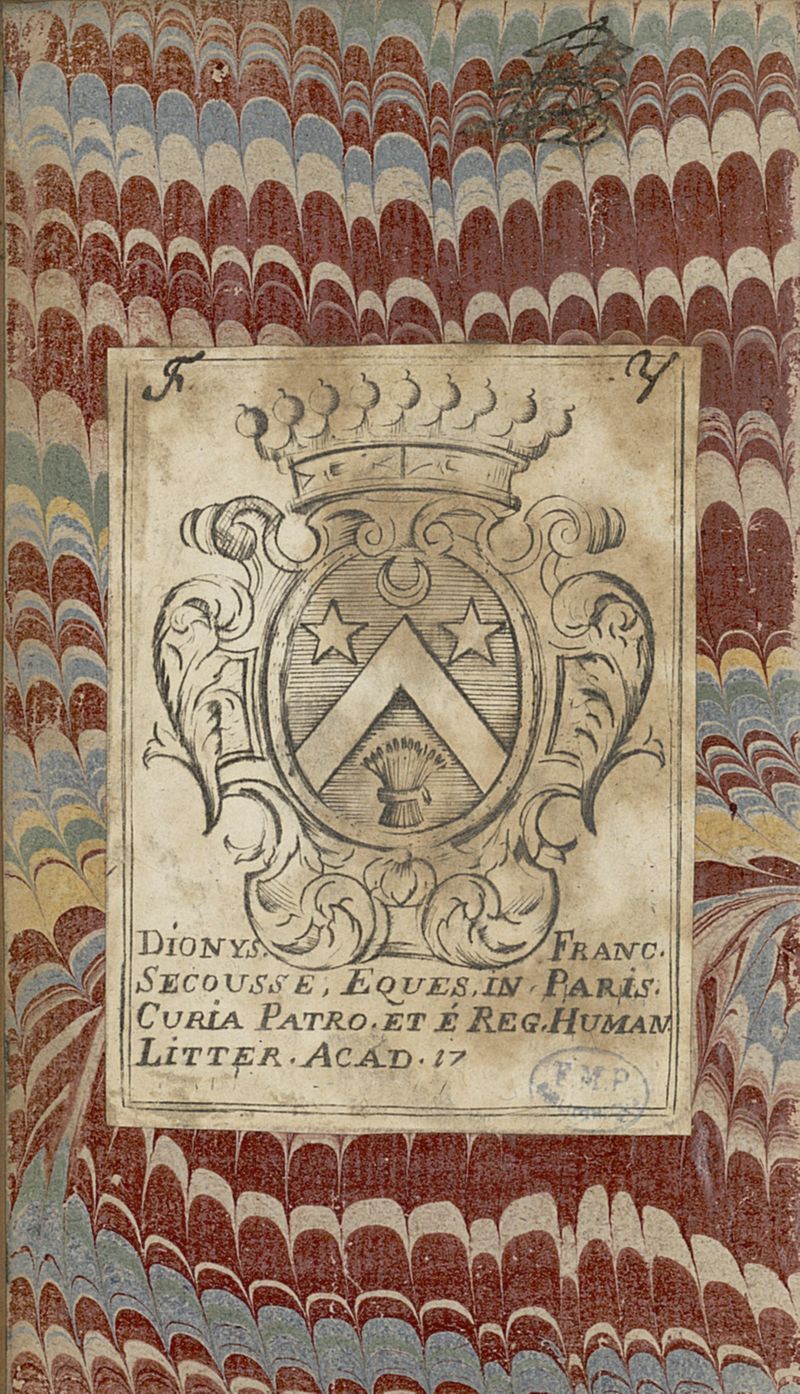 F Y
DIONYS. FRANC.
SECOUSSE, EQUES, IN PARIS.
CURIA PATRO. ET É REG. HUMAN
LITTER. ACAD. 17
F.M.P.